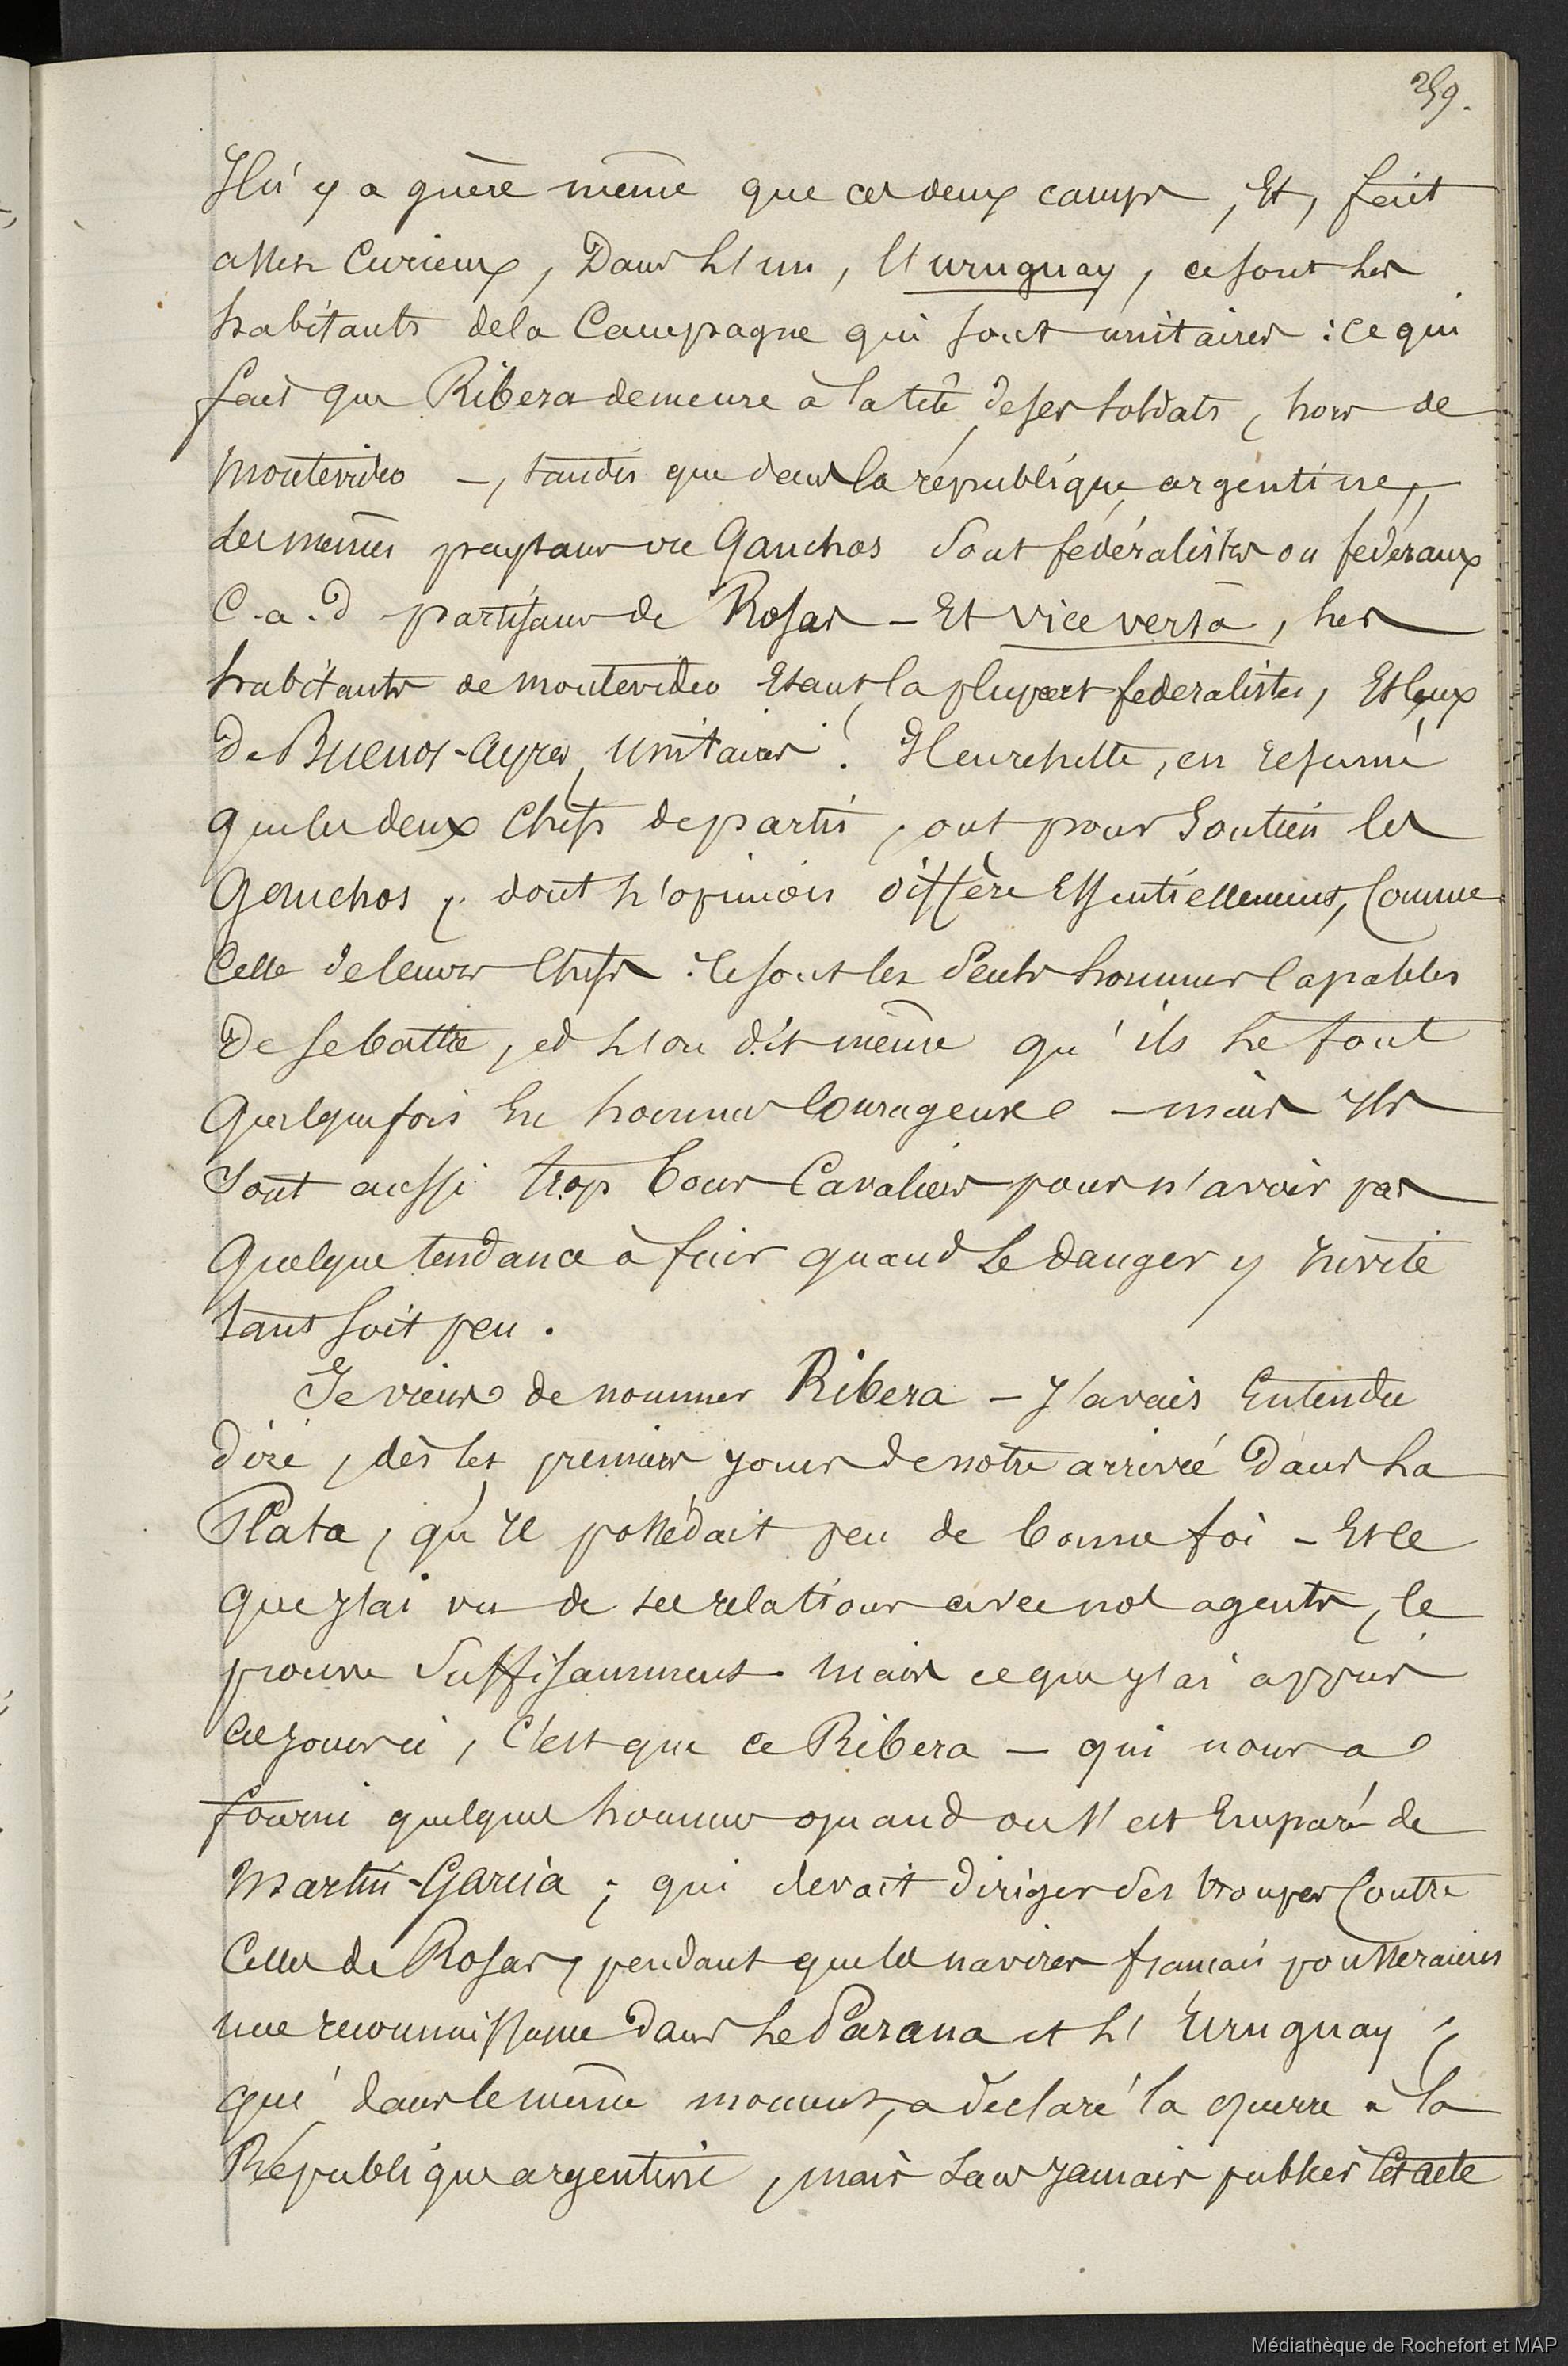 259.
Il n'y a guère même que ces deux camps, Et, fait
assez Curieux, Dans l'un, l'uruguay, ce sont les
habitants de la Campagne qui sont unitaires : ce qui
fait que Ribera demeure à la tête de ses soldats, hors de
Montevideo –, tandis que dans la république argentine,
les mêmes paysans ou Gauchos sont fédéralistes ou fédéraux
C.a.d partisans de Rosas – Et vice versâ, les
habitants de Montevideo Etant, la plupart federalistes, Et ceux
De Buenos-Ayres, unitaires ! Il en résulte, en résumé
que les deux Chefs de partis, ont pour soutien les
Gauchos, dont l'opinion diffère Essentiellement, Comme
Celle de leurs Chefs : ce sont les seuls hommes Capables
De se battre, et l'on dit même qu'ils le font
Quelquefois En hommes Courageux – mais Ils
sont aussi trop bons Cavaliers pour n'avoir pas
Quelque tendance à fuir quand le danger y invite
tant soit peu.
Je viens de nommer Ribera – J'avais Entendu
dire, dès les premiers jours de notre arrivée dans La
Plata, qu'Il possédait peu de bonne foi – Et ce
que j'ai vu de ses relations avec nos agents, le
prouve suffisamment. Mais ce que j'ai appris
ces jours ci, C'est que ce Ribera – qui nous a
fourni quelques hommes quand on s'est Emparé de
Martin-Garcia ; qui devait diriger des troupes Contre
Celles de Rosas, pendant que les navires français pousseraient
une reconnaissance dans le Parana et l'Uruguay ;
qui dans le même moment, a déclaré la guerre à la
République argentine, mais sans jamais publier Cet acte
Médiathèque de Rochefort et MAP